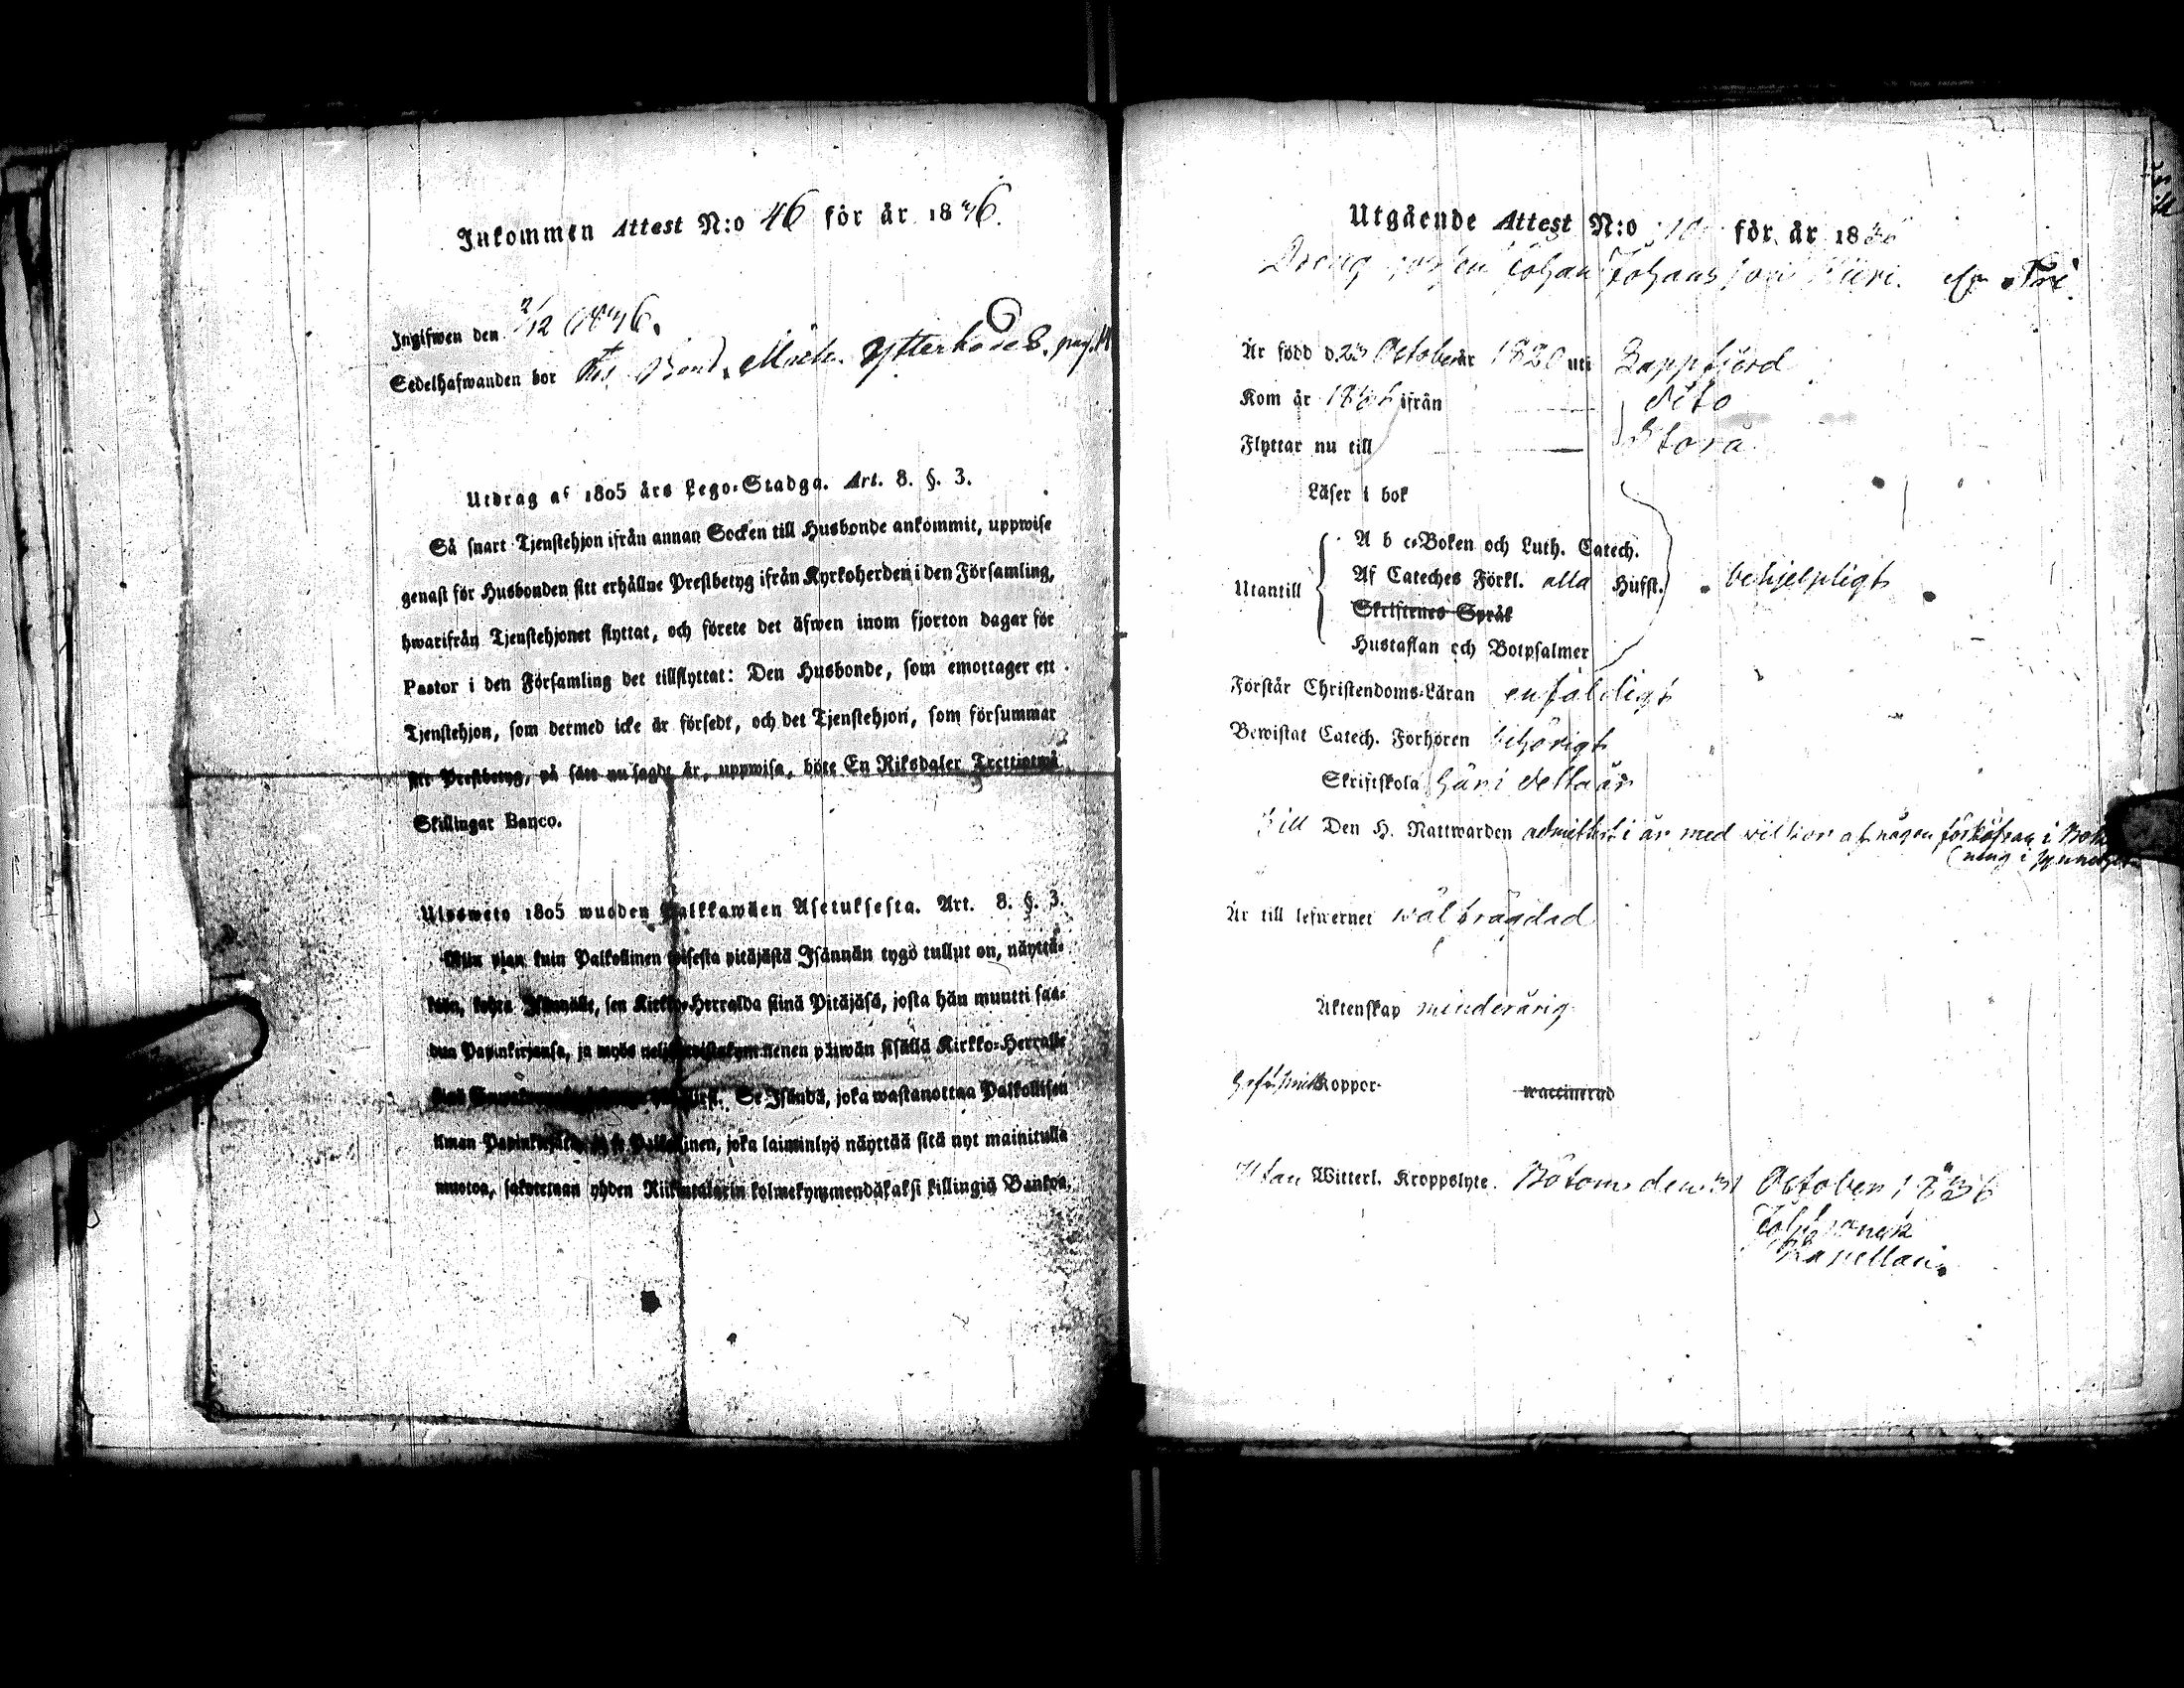 Inkommen Attest N:o 46 för år 1836.
Ingifwen den 2/12 1836.
Sedelhafwanden bor Bond. pag.
Utdrag af 1805 års Lego-Stadga. Art. 8. §. 3.
Så snart Tjenstehjon ifrån annan Socken till Husbonde ankommit, uppwise
genast för Husbonden sitt erhållne Prestbetyg ifrån Kyrkoherden i den Församling,
hwarifrån Tjenstehjonet flyttat, och förete det äfwen inom fjorton dagar för
Pastor i den Församling det tillflyttat: Den Husbonde, som emottager ett
Tjenstehjon, som dermed icke är försedt, och det Tjenstehjon, som försummar
sitt Prestbetyg, på sätt nu sagdt är, uppwisa, böte En Riksdaler Trettiotwå
Skillingar Banco.
Ulosweto 1805 wuoden Palkkawäen Asetuksesta. Art. 8. §. 3.
Niin pian kuin Palkollinen toisesta pitäjästä Isännän tygö tullut on, näyttä-
kön, kohta Isännälle, sen Kirkko-Herralda siinä Pitäjäsä, josta hän muutti saa-
dun Papinkirjansa, ja myös neljäntoistakymmenen päiwän sisällä Kirkko-Herralle
Se Isändä, joka wastanottaa Palkollisen
ilman Papinkirjata, ja se Palkollinen, joka laiminlyö näyttää sitä nyt mainitulla
muotoa, sakotetaan yhden Riikintalarin kolmekymmendäkaksi killingiä Bankoa.
Utgående Attest N:o 10 för år 1836
Dreng Johan Johansson
Är född d. 23 October år 1820 uti Lappfjerd
Kom år 1836 ifrån dito
Flyttar nu till Storå
Läser i bok
Utantill
A b c-Boken och Luth. Catech.
Af Cateches Förkl. alla Hufst. behjelpligt
Skriftenes Språk
Hustaflan och Botpsalmer
Förstår Christendoms-Läran enfaldigt
Bewistat Catech. Förhören behörigt
Skriftskola här i detta år
Till Den H. Nattwarden admitterd i år med willkor af någon förkofran i
Är till lefwernet wälfrägdad
Äktenskap minderårig
Koppor
waccinerad
Utan Witterl. Kroppslyte. Bötom den 31 October 1836
Kapellan.